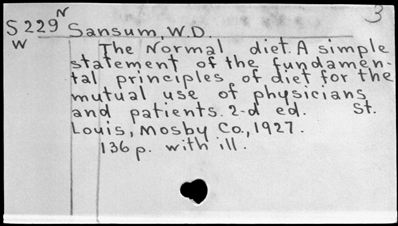 N 3
S 229 Sansum, W.D.
W
The Normal diet. A simple
statement of the fundamen-
tal principles of diet for the
mutual use of physicians
and patients. 2-d ed. St.
Louis, Mosby Co., 1927.
136 p. with ill.